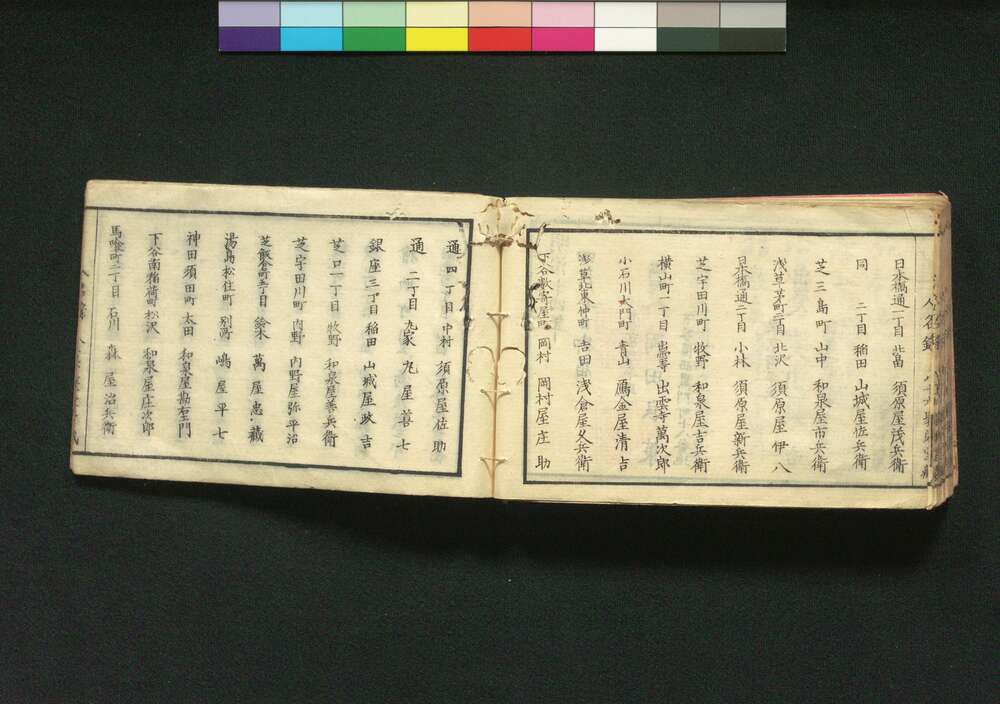 日本橋通一丁目 北畠 須原屋茂兵衛
同 二丁目 稲田 山城屋佐兵衛
芝三島町 山中 和泉屋市兵衛
浅草茅町二丁目 北沢 須原屋伊八
日本橋通二丁目 小林 須原屋新兵衛
芝宇田川町 牧野 和泉屋吉兵衛
横山町一丁目 出雲寺 出雲寺萬次郎
小石川大門町 青山 鴈金屋清吉
浅草北東仲町 吉田 浅倉屋久兵衛
下谷数寄屋町 岡村 岡村屋庄助
通四丁目 中村 須原屋佐助
通二丁目 丸家 丸屋善七
銀座三丁目 稲田 山城屋政吉
芝口一丁目 牧野 和泉屋善兵衛
芝宇田川町 内野 内野屋弥平治
芝飯倉町五丁目 鈴木 萬屋忠蔵
湯島松住町 別所 嶋屋平七
神田須田町 太田 和泉屋勘右エ門
下谷南稲荷町 松沢 和泉屋庄次郎
馬喰町二丁目 石川 森屋治兵衛